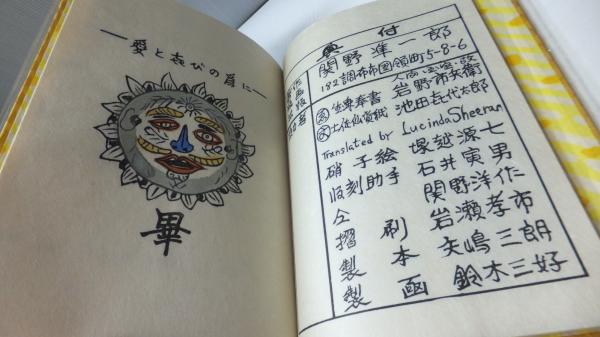 —愛と喜びの為に—
畢
奥付
関野準一郎
182調布市国領町5-8-6
人間・国宝・故
岩野市兵衛
池田喜代太郎
Translated by Lucinda Sheeran
硝子絵 塚越源七
彫刻助手 石井寅男
仝 関野洋作
摺刷 岩瀬孝市
製本 矢嶋三朗
製函 鈴木三好